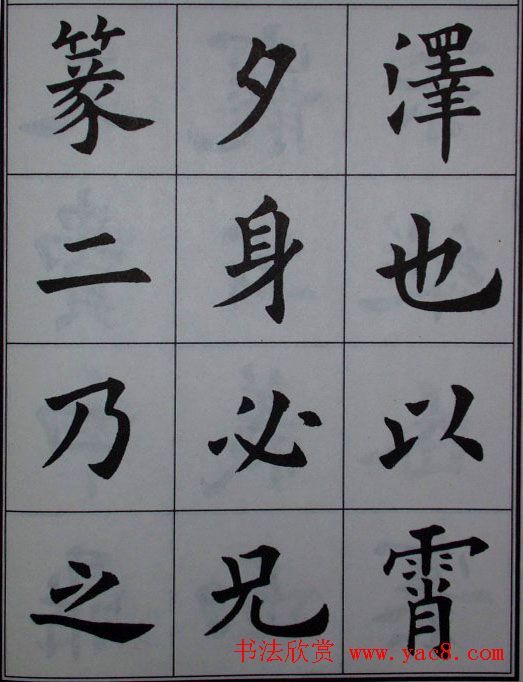 澤也以霄
夕身必兄
篆二乃之
书法欣赏 www.yac8.com